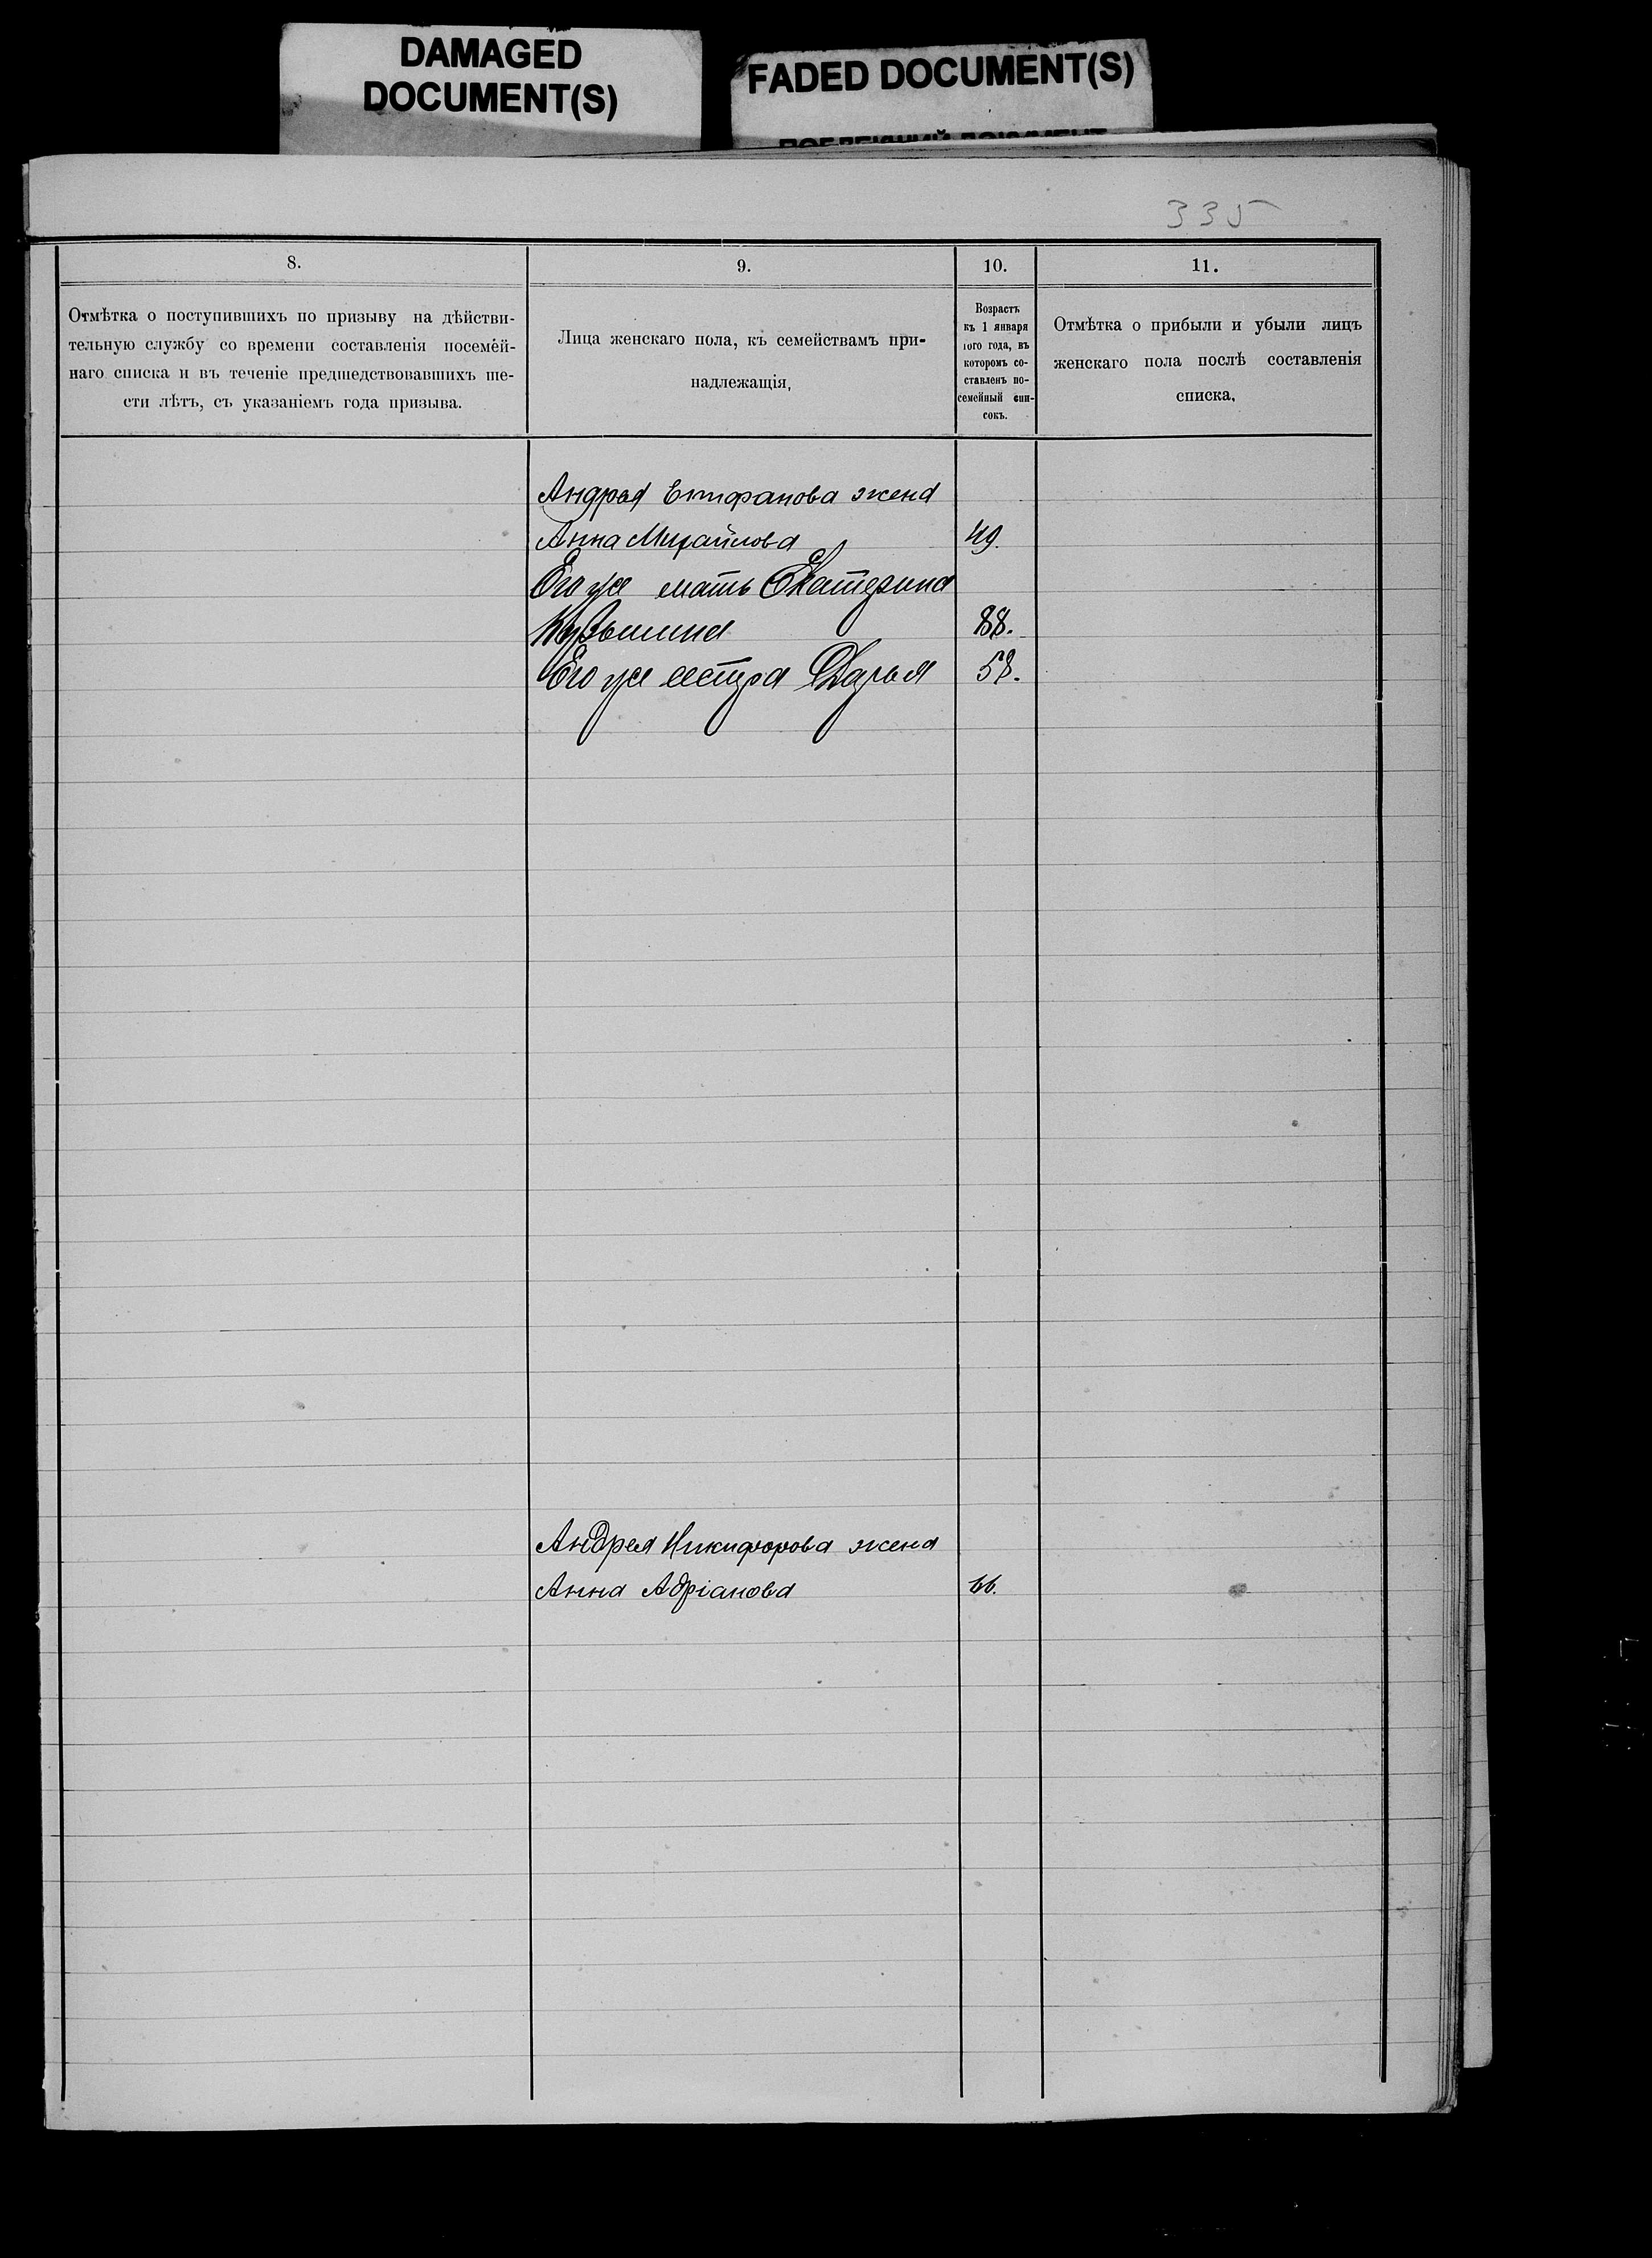 DAMAGED
DOCUMENT(S)
FADED DOCUMENT(S)
335
8.
9.
10.
11.
Отмѣтка о поступившихъ по призыву на дѣйстви-
тельную службу со времени составленія посемей-
наго списка и въ теченіе предшедствовавшихъ ше-
сти лѣтъ, съ указаніемъ года призыва.
Лица женскаго пола, къ семействамъ при-
надлежащія,
Возрастъ
къ 1 января
того года, въ
которомъ со-
ставленъ по-
семейный спи-
сокъ.
Отмѣтка о прибыли и убыли лицъ
женскаго пола послѣ составленія
списка,
Андрея Епифанова жена
Анна Михайлова 49.
Его же мать Екатерина
Кузьмина 88.
Его же сестра Дарья 58.
Андрея Никифорова жена
Анна Адріанова 66.